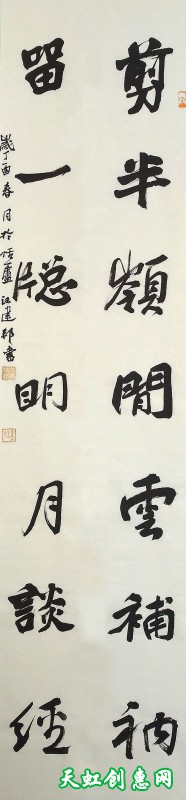 剪半嶺閒雲補衲
留一牕明月談經
歲丁酉春月於
江建邨書
天虹创惠网